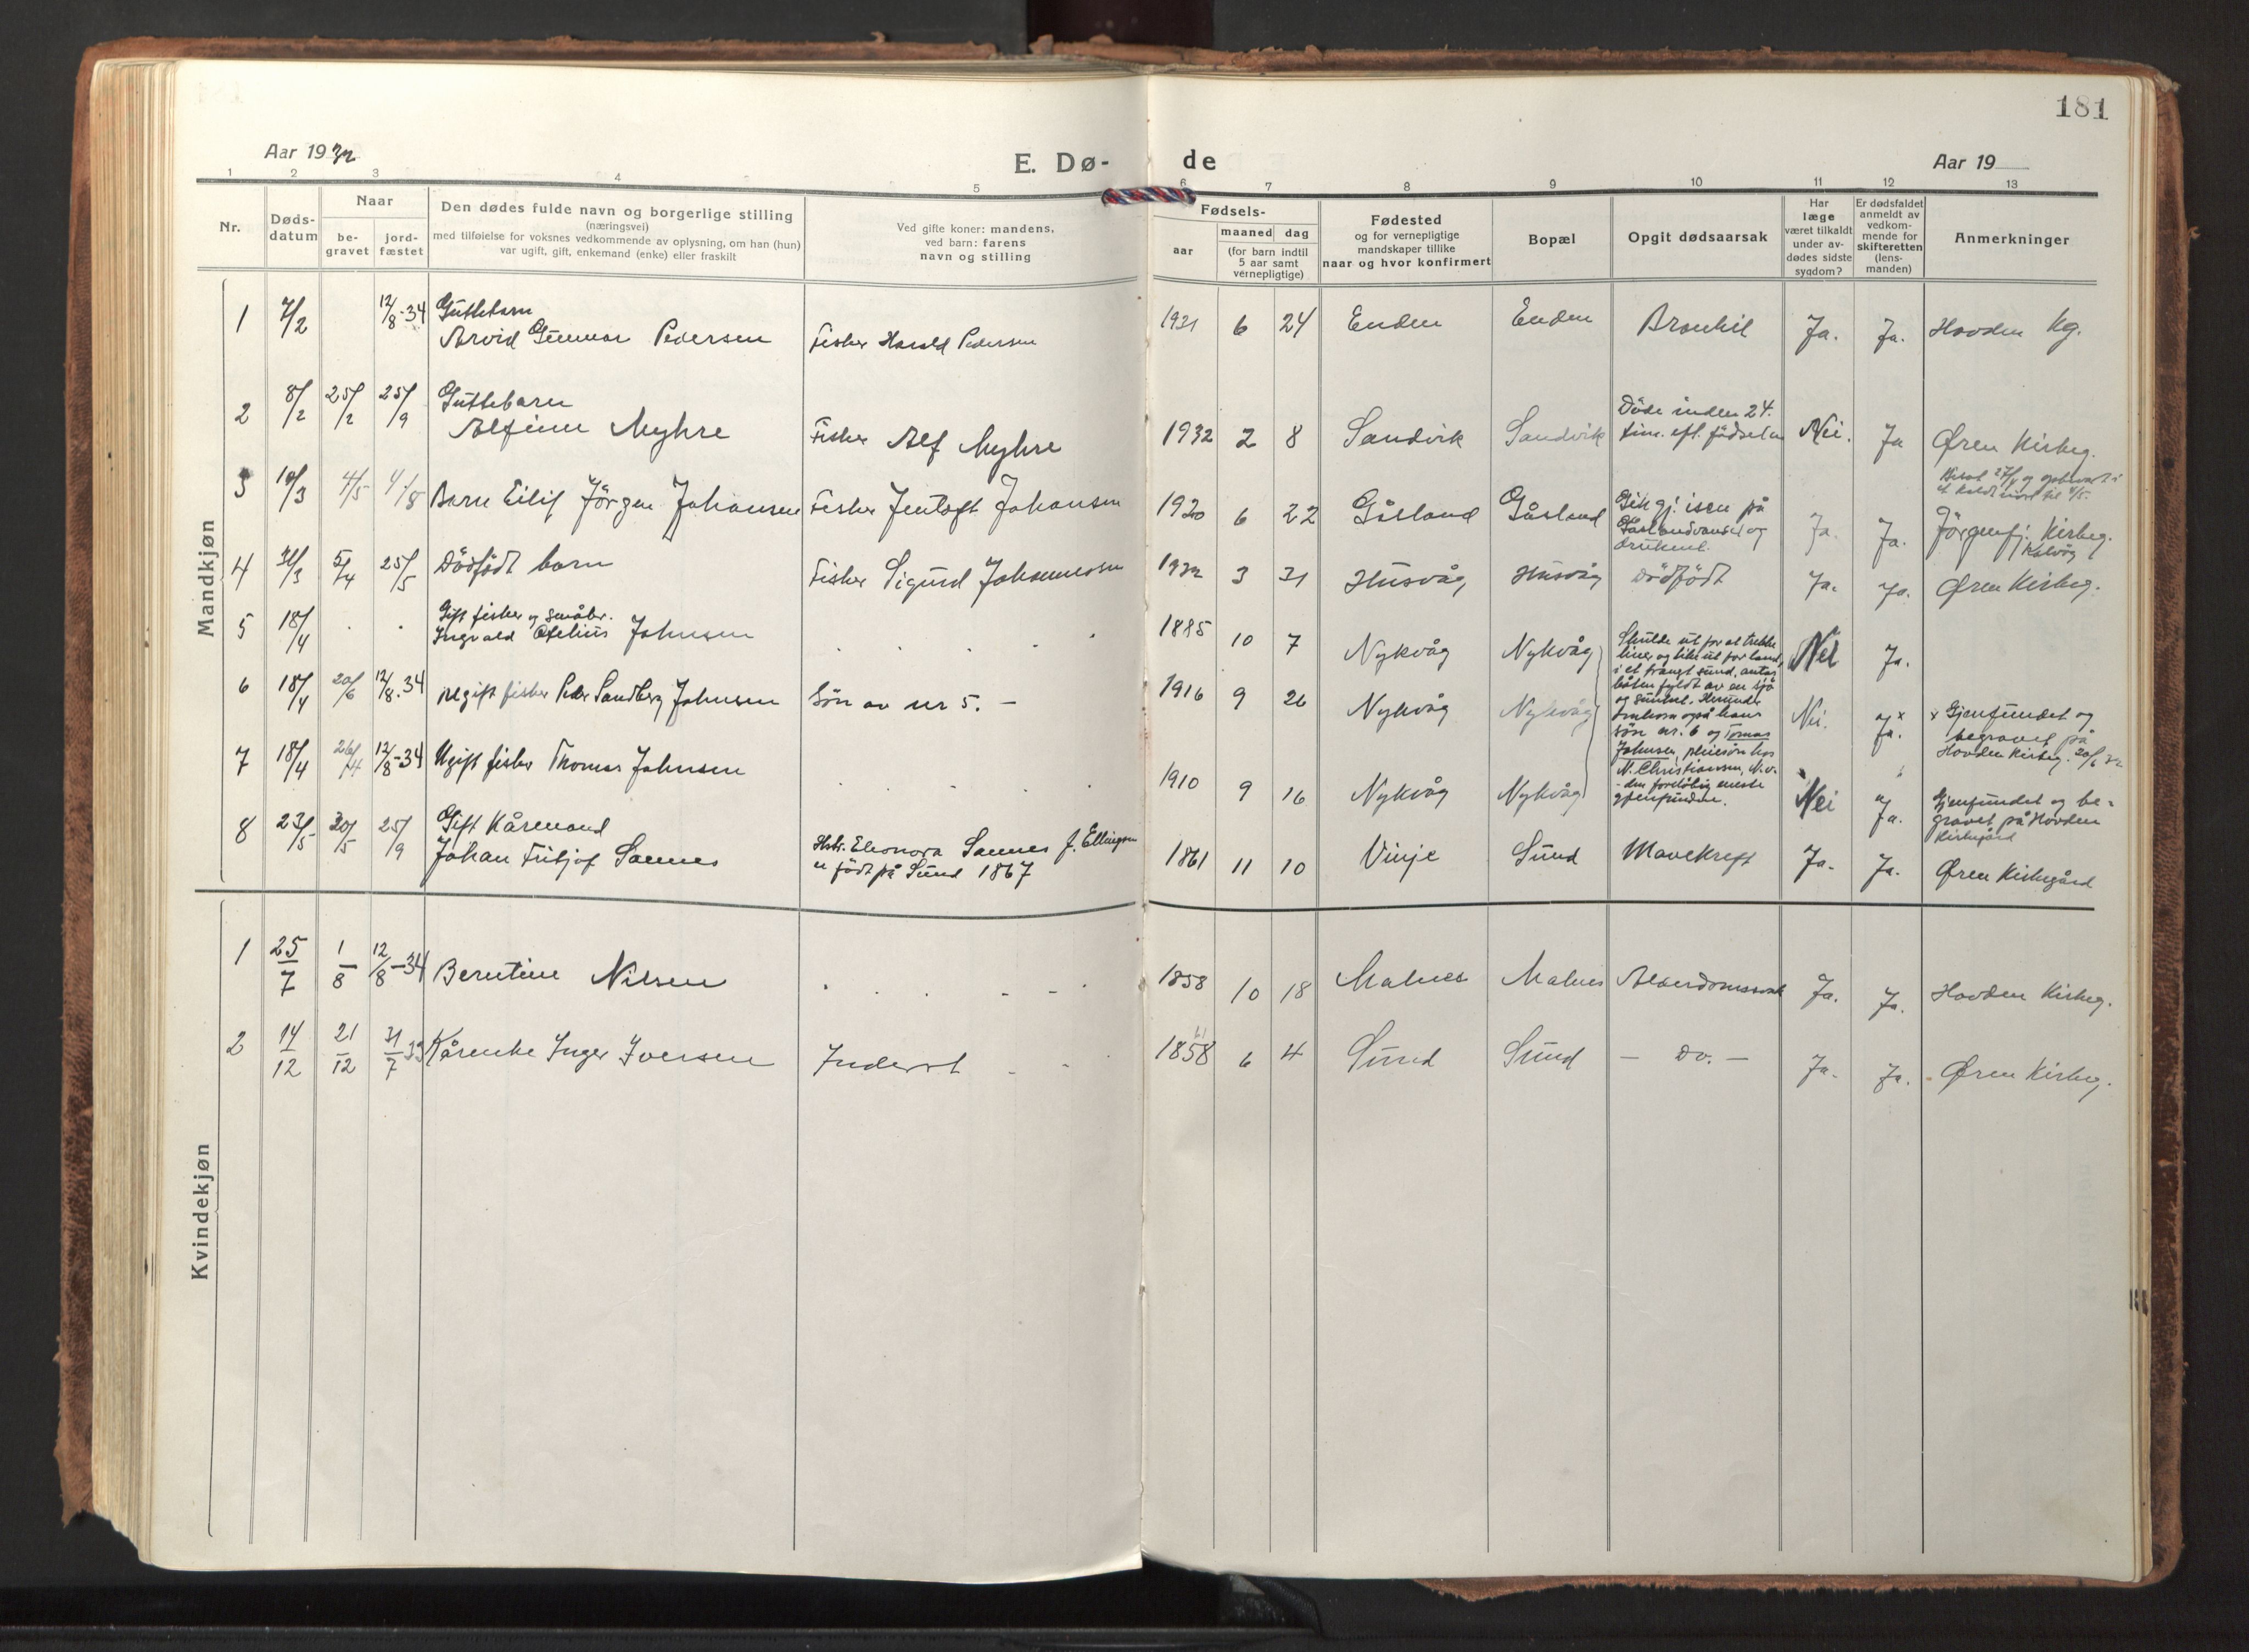 181
Aar 1932
E. Dø-
de
Aar 19
1 2 3 4 5 6 7 8 9 10 11 12 13
Nr.
Døds-
datum
Naar
be-
gravet
jord-
fæstet
Den dødes fulde navn og borgerlige stilling
(næringsvei)
med tilføielse for voksnes vedkommende av oplysning, om han (hun)
var ugift, gift, enkemand (enke) eller fraskilt
Ved gifte koner: mandens,
ved barn: farens
navn og stilling
Fødsels-
aar
maaned dag
(for barn indtil
5 aar samt
vernepligtige)
Fødested
og for vernepligtige
mandskaper tillike
naar og hvor konfirmert
Bopæl
Opgit dødsaarsak
Har
læge
været tilkaldt
under av-
dødes sidste
sygdom?
Er dødsfaldet
anmeldt av
vedkom-
mende for
skifteretten
(lens-
manden)
Anmerkninger
Mandkjøn
1 7/2 12/8-34 Guttebarn
Arvid Gunnar Pedersen Fisker Harald Pedersen 1931 6 24 Enden Enden Bronkit Ja. Ja. Hovden Kg.
2 8/2 25/2 25/9 Guttebarn
Alfinn Myhre Fisker Alf Myhre 1932 2 8 Sandvik Sandvik Döde inden 24.
tim. eft. födselen Nei. Ja Øren Kirkeg.
3 10/3 4/5 4/8 Barn Eilif Jörgen Johansen Fisker Jentoft Johansen 1920 6 22 Gåsland Gåsland Gik gj. isen på
Gåslandvanset og
druknet. Ja. Ja. Jörgenfj. Kirkeg.
Kalvåg
4 31/3 5/4 25/5 Dödfödt barn Fisker Sigurd Johannessen 1932 3 31 Husvåg Husvåg Dödfödt Ja. Ja. Øren Kirkeg.
5 18/4 Gift fisker og småbr.
Ingvald Ofelius Johnsen 1885 10 7 Nykvåg Nykvåg Nei Ja.
Skulde ut for at trekke
liner og like ut for land,
i et trangt sund, antas
båten fyldt av en sjö
og sunket. Herunder
omkom også hans
sön nr. 6 og Tomas
Johnsen, pleiesön hos
N. Christiansen, N.v.
- den foreløbig eneste
gjenfundne.
6 18/4 20/6 12/8.34 Ugift fisker Peder Sandberg Johnsen Sön av nr 5. - 1916 9 26 Nykvåg Nykvåg Nei. Ja. x x Gjenfundet og
begravet på
Hovden Kirkeg. 20/6 32
7 18/4 26/4 12/8-34 Ugift fisker Thomas Johnsen 1910 9 16 Nykvåg Nykvåg Nei Ja. Gjenfundet og be-
gravet på Hovden
Kirkegård
8 23/5 30/5 25/9 Gift Kårmand
Johan Fritjof Sannes Hstr. Eleonora Sannes f. Ellingsen
er födt på Sund 1867 1861 11 10 Vinje Sund Mavekreft Ja. Ja. Øren Kirkegård
Kvindekjøn
1 25/7 1/8 12/8-34 Berntine Nilsen 1858 10 18 Malnes Malnes Alderdomssvak Ja. Ja. Hovden Kirkeg.
2 14/12 21/12 31/7 33 Kårenke Inger Iversen Inderst 1858 6 4 Sund Sund - Do. - Ja. Ja. Øren Kirkeg.